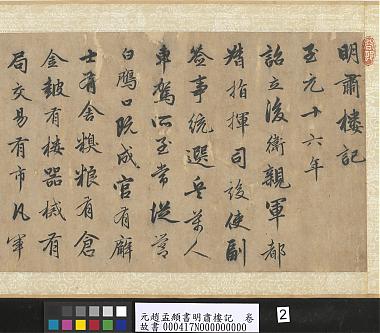 明肅樓記
至元十六年
詔立後衛親軍都
指揮司設使副
簽事統選兵萬人
車駕所至常從營
白鴈口既成官有廨
士有舍糗粮有倉
金鼓有樓器械有
局交易有市凡軍
元趙孟頫書明肅樓記 卷
故書 000417N000000000
2